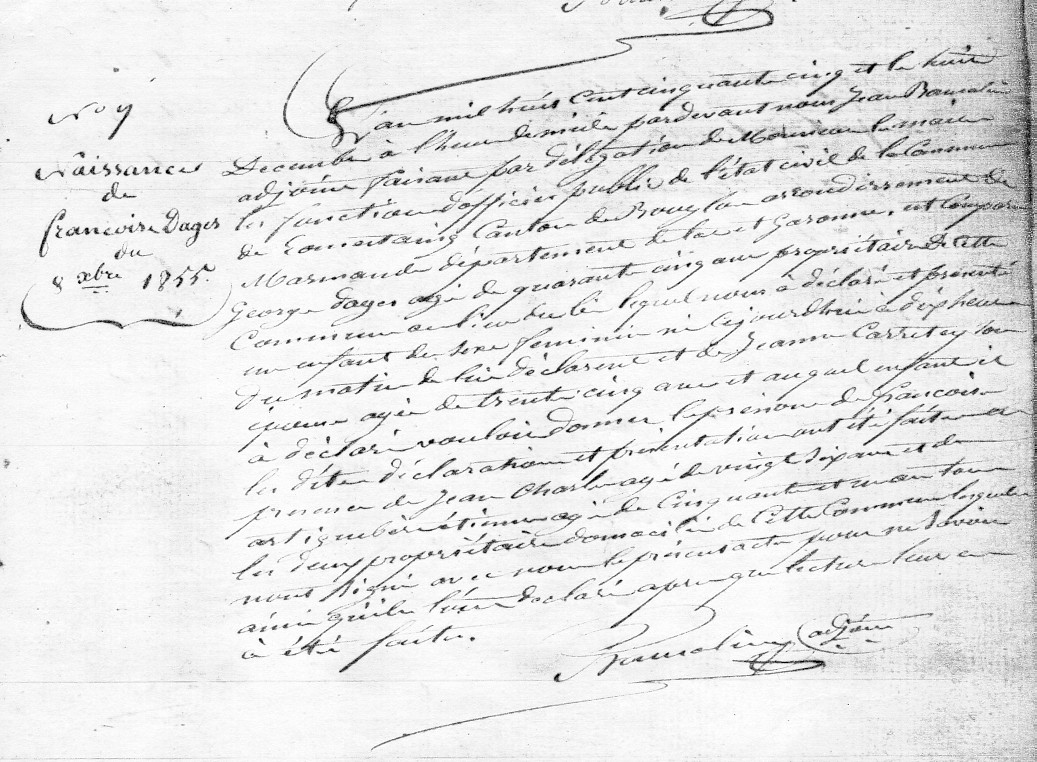 N° 9
Naissance
de
francoise Dages
du
8 xbre 1855.
L'an mil huit cent cinquante cinq et le huit
Decembre à l'heure de midi pardevant nous Jean
adjoint faisant par délégation de Monsieur le maire
les fonctions d'officier public de l'état civil de la Commune
de Canton de Bouglon arrondissement de
Marmande département de lot et Garonne, est comparu
George Dages agé de quarante cinq ans propriétaire de Cette
Commune au lieu du lequel nous à déclaré et présenté
un enfant de sexe feminin né ce jourdhui à dix heures
du matin de lui déclarent et de Jeanne Carretey son
épouse agée de trente cinq ans et auquel enfant il
à déclaré vouloir donner le prénom de francoise
les dites déclaration et présentation ont été faites en
presence de Jean Charle agé de vingt six ans et de
artigubère étienne agé de Cinquante et un an tous
les deux propriétaire domicilié de Cette Commune lesquels
nont signé avec nous le présent acte pour ne Savoir
ainsi qu'ils l'ont declaré apres que lecture leur en
à été faite.
adjoint